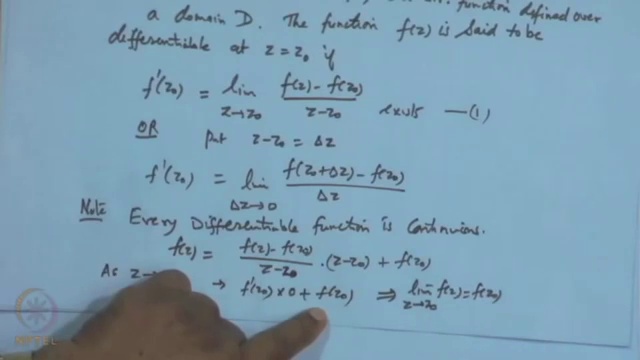 function defined over
a domain D. The function f(z) is said to be
differentiable at z = z₀ if
f'(z₀) = lim z→z₀ (f(z) - f(z₀))/(z - z₀) exists —(1)
OR Put z-z₀ = Δz
f'(z₀) = lim Δz→0 (f(z₀+Δz) - f(z₀))/Δz
Note Every Differentiable function is Continuous.
f(z) = (f(z) - f(z₀))/(z-z₀) · (z-z₀) + f(z₀)
As z→
→ f'(z₀) × 0 + f(z₀) ⇒ lim z→z₀ f(z) = f(z₀)
NPTEL